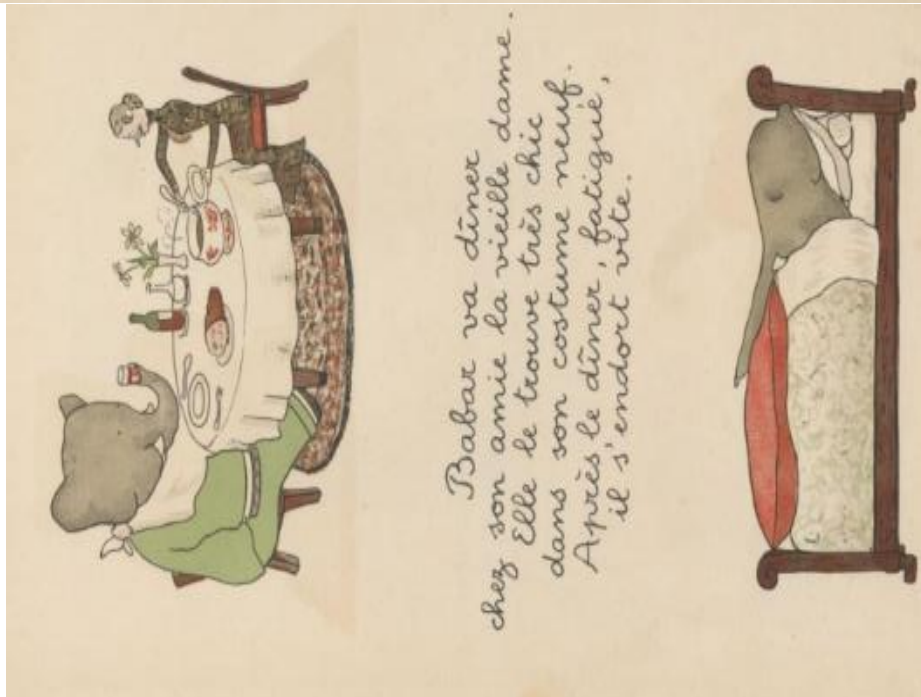 Babar va dîner
chez son amie la vieille dame.
Elle le trouve très chic
dans son costume neuf.
Après le dîner, fatigué,
il s'endort vite.